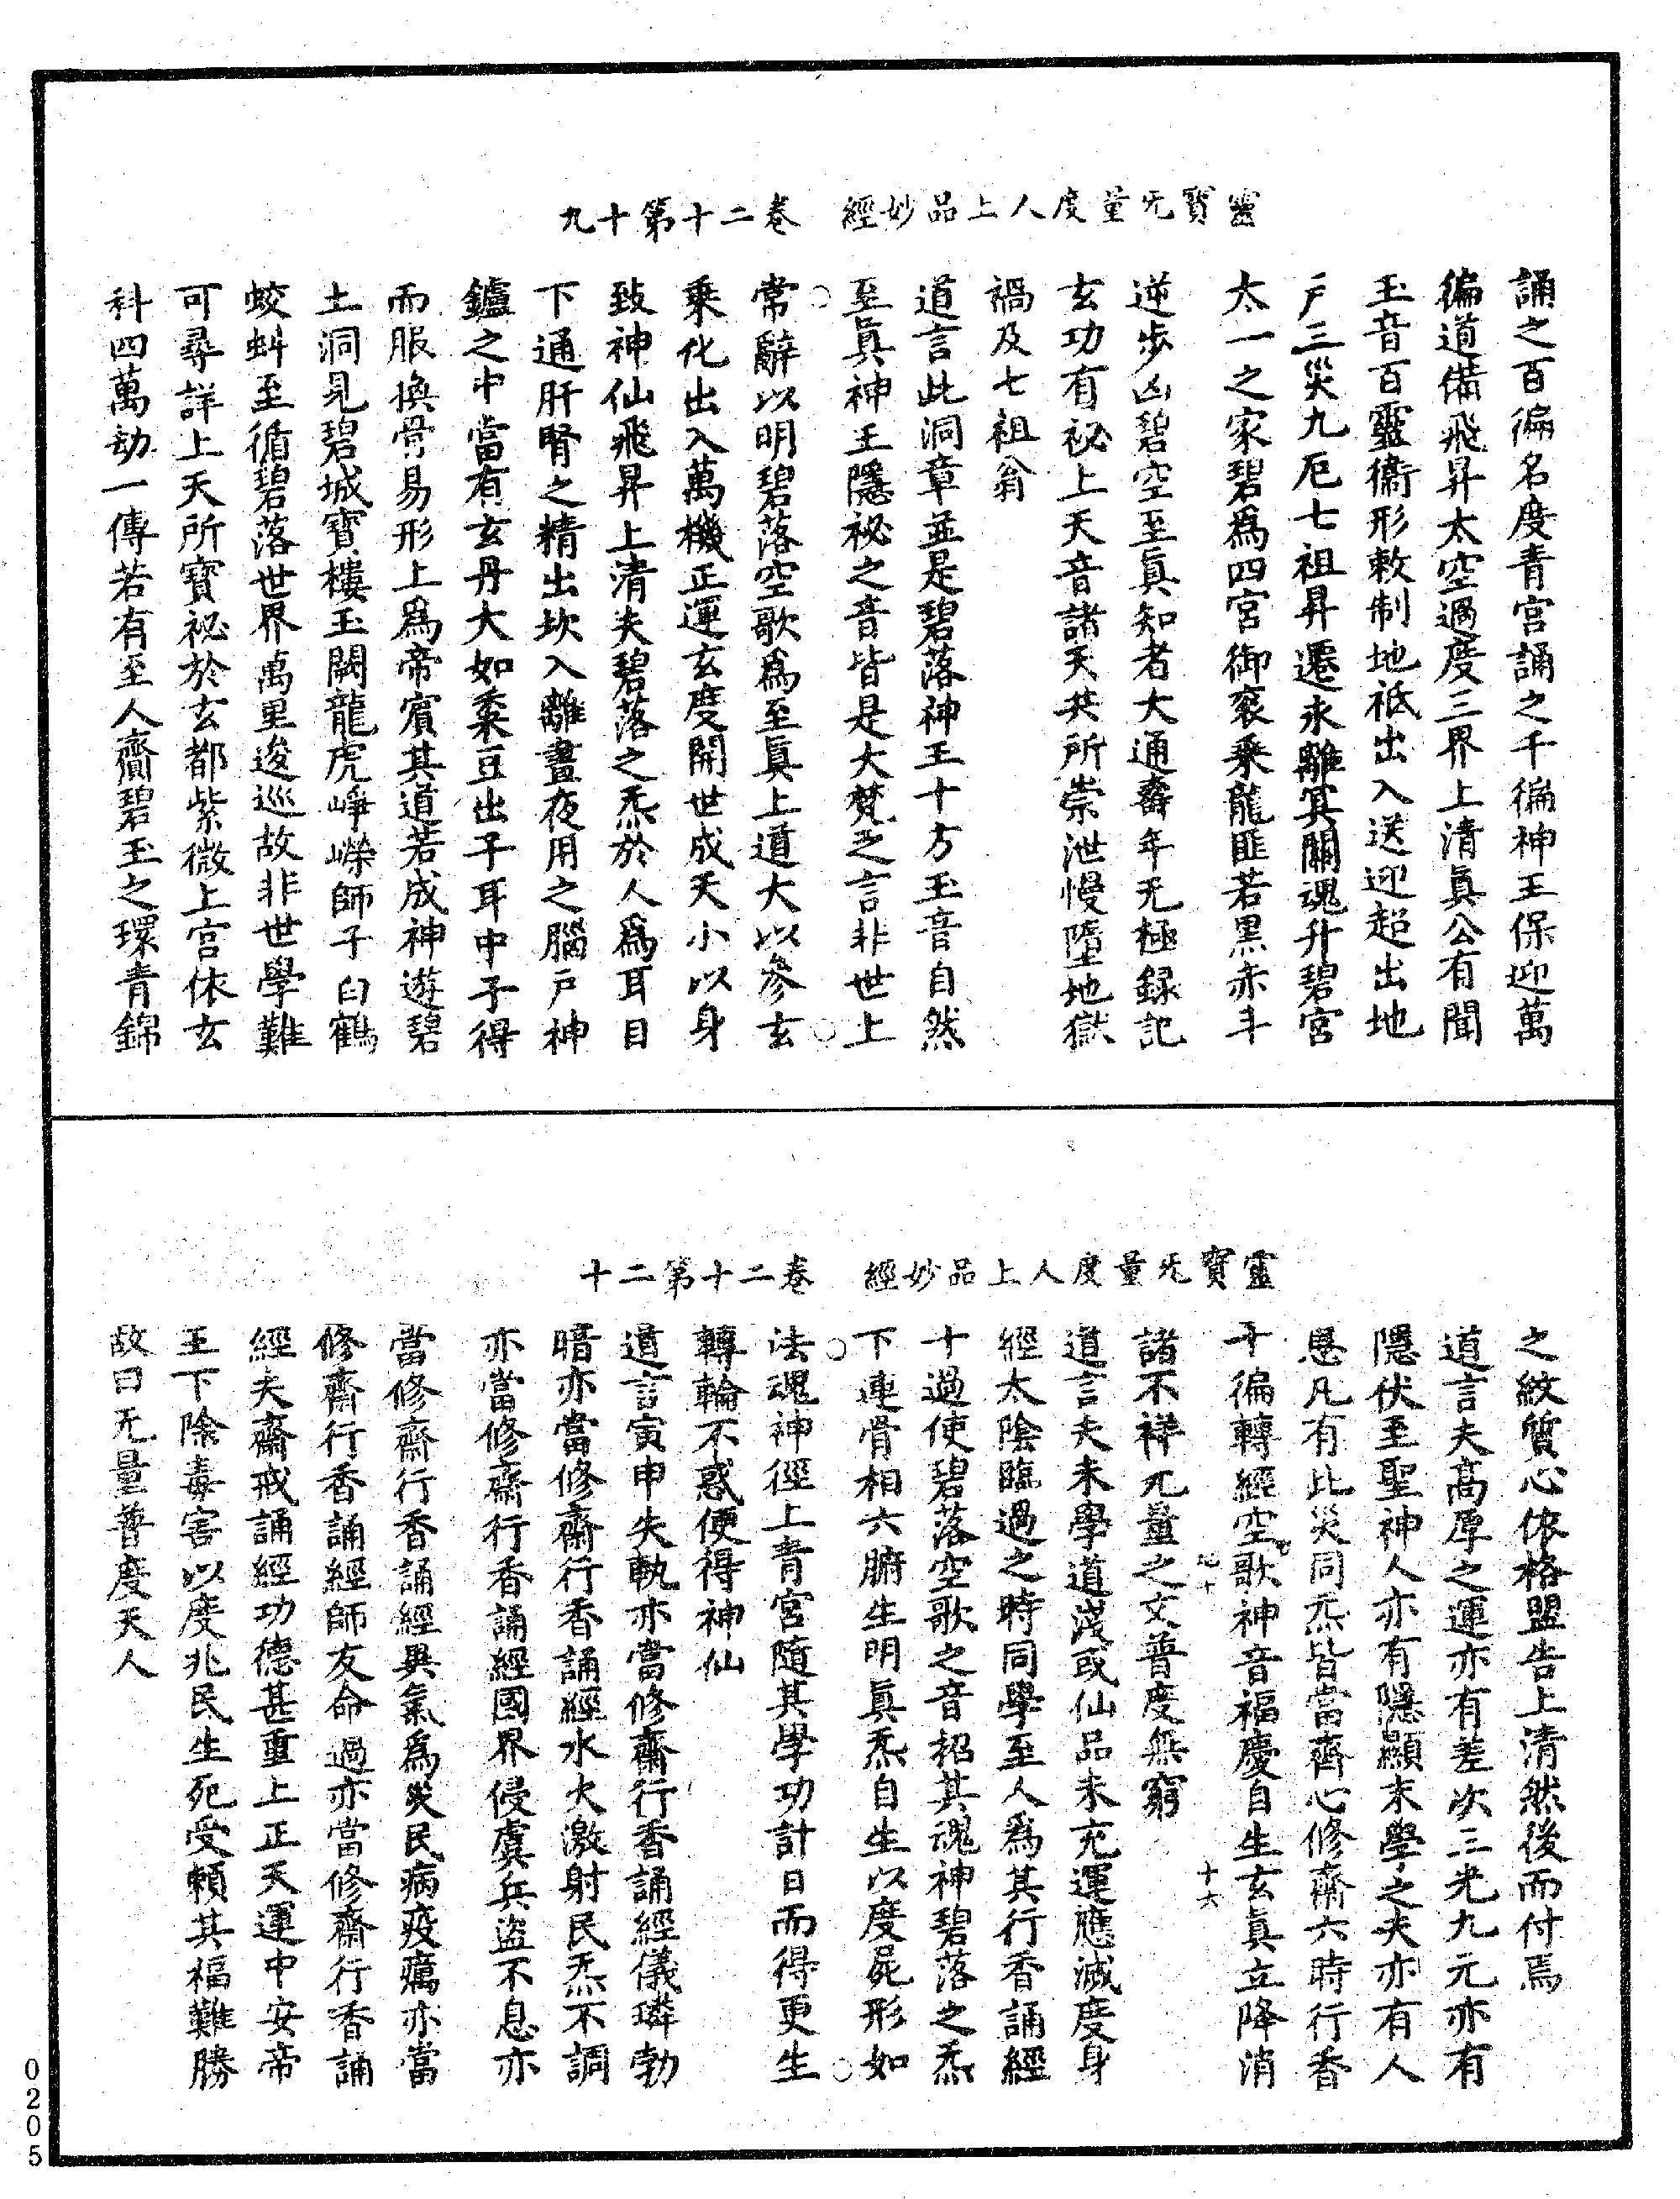 靈寶无量度人上品妙經　卷二十第十九
誦之百徧名度青宮誦之千徧神王保迎萬
徧道備飛昇太空過度三界上清真公有聞
玉音百靈衞形敕制地祇出入送迎超出地
戶三災九厄七祖昇遷永離冥關魂升碧宮
太一之家碧爲四宮御衮乘龍匪若黑赤斗
逆步凶碧空至真知者大通齋年无極録記
玄功有祕上天音諸天共所崇泄慢墮地獄
禍及七祖翁
道言此洞章並是碧落神王十方玉音自然
至真神王隱祕之音皆是大梵之言非世上
常辭以明碧落空歌爲至真上道大以參玄
乘化出入萬機正運玄度開世成天小以身
致神仙飛昇上清夫碧落之炁於人爲耳目
下通肝腎之精出坎入離晝夜用之腦戶神
鑪之中當有玄丹大如黍豆出子耳中子得
而服換骨易形上爲帝賓其道若成神遊碧
土洞見碧城寶樓玉闕龍虎崢嶸師子白鶴
蛟虯至循碧落世界萬里逡巡故非世學難
可尋詳上天所寶祕於玄都紫微上宮依玄
科四萬劫一傳若有至人齎碧玉之環青錦
靈寶无量度人上品妙經　卷二十第二十
之紋質心依格盟告上清然後而付焉
道言夫高厚之運亦有差次三光九元亦有
隱伏至聖神人亦有隱顯末學之夫亦有人
愚凡有此災同炁皆當齊心修齋六時行香
十徧轉經空歌神音福慶自生玄真立降消
諸不祥无量之文普度無窮
十六
道言夫末學道淺或仙品未充運應滅度身
經太陰臨過之時同學至人爲其行香誦經
十過使碧落空歌之音招其魂神碧落之炁
下連骨相六腑生明真炁自生以度屍形如
法魂神徑上青宮隨其學功計日而得更生
轉輪不惑便得神仙
道言寅申失軌亦當修齋行香誦經儀璘勃
暗亦當修齋行香誦經水火激射民炁不調
亦當修齋行香誦經國界侵虞兵盜不息亦
當修齋行香誦經異氣爲災民病疫癘亦當
修齋行香誦經師友命過亦當修齋行香誦
經夫齋戒誦經功德甚重上正天運中安帝
王下除毒害以度兆民生死受賴其福難勝
故曰无量普度天人
0205